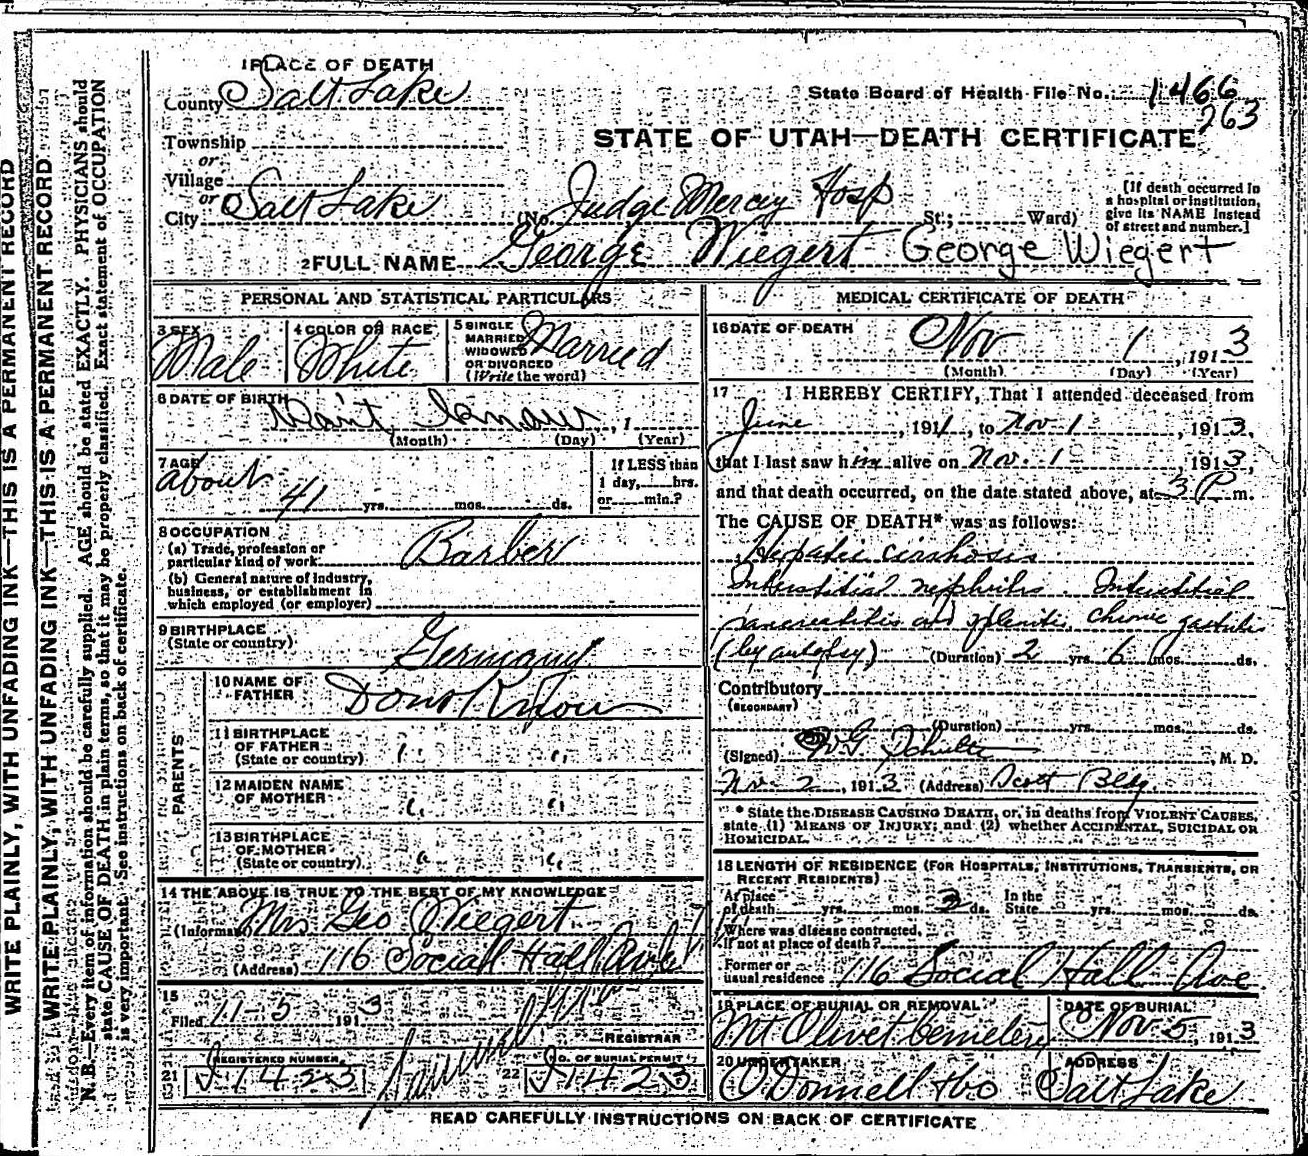 WRITE PLAINLY, WITH UNFADING INK—THIS IS A PERMANENT RECORD
WRITE PLAINLY, WITH UNFADING INK—THIS IS A PERMANENT RECORD
N. B.—Every item of information should be carefully supplied. AGE should be stated EXACTLY. PHYSICIANS should
state CAUSE OF DEATH in plain terms, so that it may be properly classified. Exact statement of OCCUPATION
is very important. See instructions on back of certificate.
1 PLACE OF DEATH
County Salt Lake
State Board of Health File No. 1466
263
Township
or
Village
or
City Salt Lake
STATE OF UTAH—DEATH CERTIFICATE
(No. Judge Mercy Hosp St.; Ward)
[If death occurred in
a hospital or institution,
give its NAME instead
of street and number.]
2 FULL NAME George Wiegert George Wiegert
PERSONAL AND STATISTICAL PARTICULARS
3 SEX
Male
4 COLOR OR RACE
White
5 SINGLE
MARRIED
WIDOWED
OR DIVORCED
(Write the word)
Married
6 DATE OF BIRTH
Don't Know, 1
(Month) (Day) (Year)
7 AGE
About
41 yrs. mos. ds.
If LESS than
1 day, hrs.
or min.?
8 OCCUPATION
(a) Trade, profession or
particular kind of work Barber
(b) General nature of industry,
business, or establishment in
which employed (or employer)
9 BIRTHPLACE
(State or country) Germany
PARENTS
10 NAME OF
FATHER Dont Know
11 BIRTHPLACE
OF FATHER
(State or country) " "
12 MAIDEN NAME
OF MOTHER " "
13 BIRTHPLACE
OF MOTHER
(State or country) " "
14 THE ABOVE IS TRUE TO THE BEST OF MY KNOWLEDGE
(Informant) Mrs Geo Wiegert
(Address) 116 Social Hall Ave
15
Filed 11-5 1913
REGISTRAR
REGISTERED NUMBER
21 J1423
NO. OF BURIAL PERMIT
22 J1423
MEDICAL CERTIFICATE OF DEATH
16 DATE OF DEATH
Nov 1, 1913
(Month) (Day) (Year)
17 I HEREBY CERTIFY, That I attended deceased from
June, 1911, to Nov 1, 1913,
that I last saw him alive on Nov. 1, 1913,
and that death occurred, on the date stated above, at 3 P m.
The CAUSE OF DEATH* was as follows:
Hepatic cirrhosis
Interstitial nephritis. Interstitial
pancreatitis and splenitis, chronic gastritis
(by autopsy) (Duration) 2 yrs. 6 mos. ds.
Contributory
(SECONDARY)
(Duration) yrs. mos. ds.
(Signed) W G Schulte, M. D.
Nov 2, 1913 (Address) Scott Bldg.
* State the DISEASE CAUSING DEATH, or, in deaths from VIOLENT CAUSES,
state (1) MEANS OF INJURY; and (2) whether ACCIDENTAL, SUICIDAL OR
HOMICIDAL.
18 LENGTH OF RESIDENCE (FOR HOSPITALS, INSTITUTIONS, TRANSIENTS, OR
RECENT RESIDENTS)
At place
of death yrs. mos. 2 ds.
In the
State yrs. mos. ds.
Where was disease contracted,
if not at place of death?
Former or
usual residence 116 Social Hall Ave
19 PLACE OF BURIAL OR REMOVAL
Mt Olivet Cemetery
DATE OF BURIAL
Nov 5, 1913
20 UNDERTAKER
O'Donnell & Co
ADDRESS
Salt Lake
READ CAREFULLY INSTRUCTIONS ON BACK OF CERTIFICATE